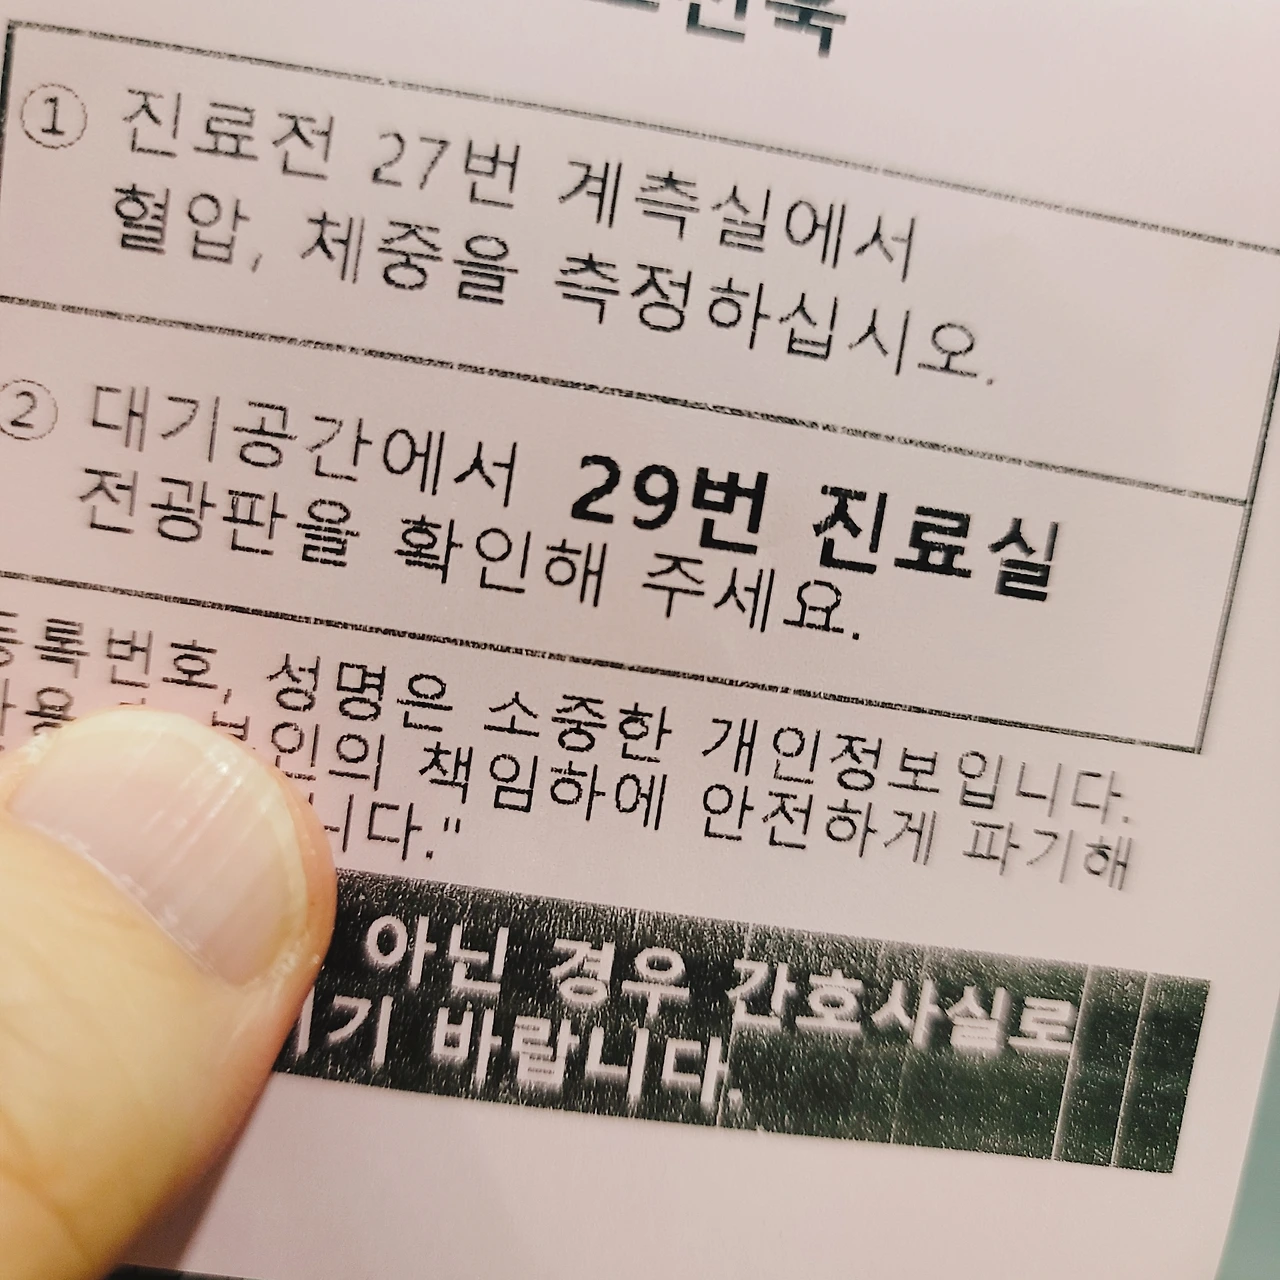 ① 진료전 27번 계측실에서
혈압, 체중을 측정하십시오.
② 대기공간에서 29번 진료실
전광판을 확인해 주세요.
등록번호, 성명은 소중한 개인정보입니다.
책임하에 안전하게 파기해
니다."
아닌 경우 간호사실로
기 바랍니다.